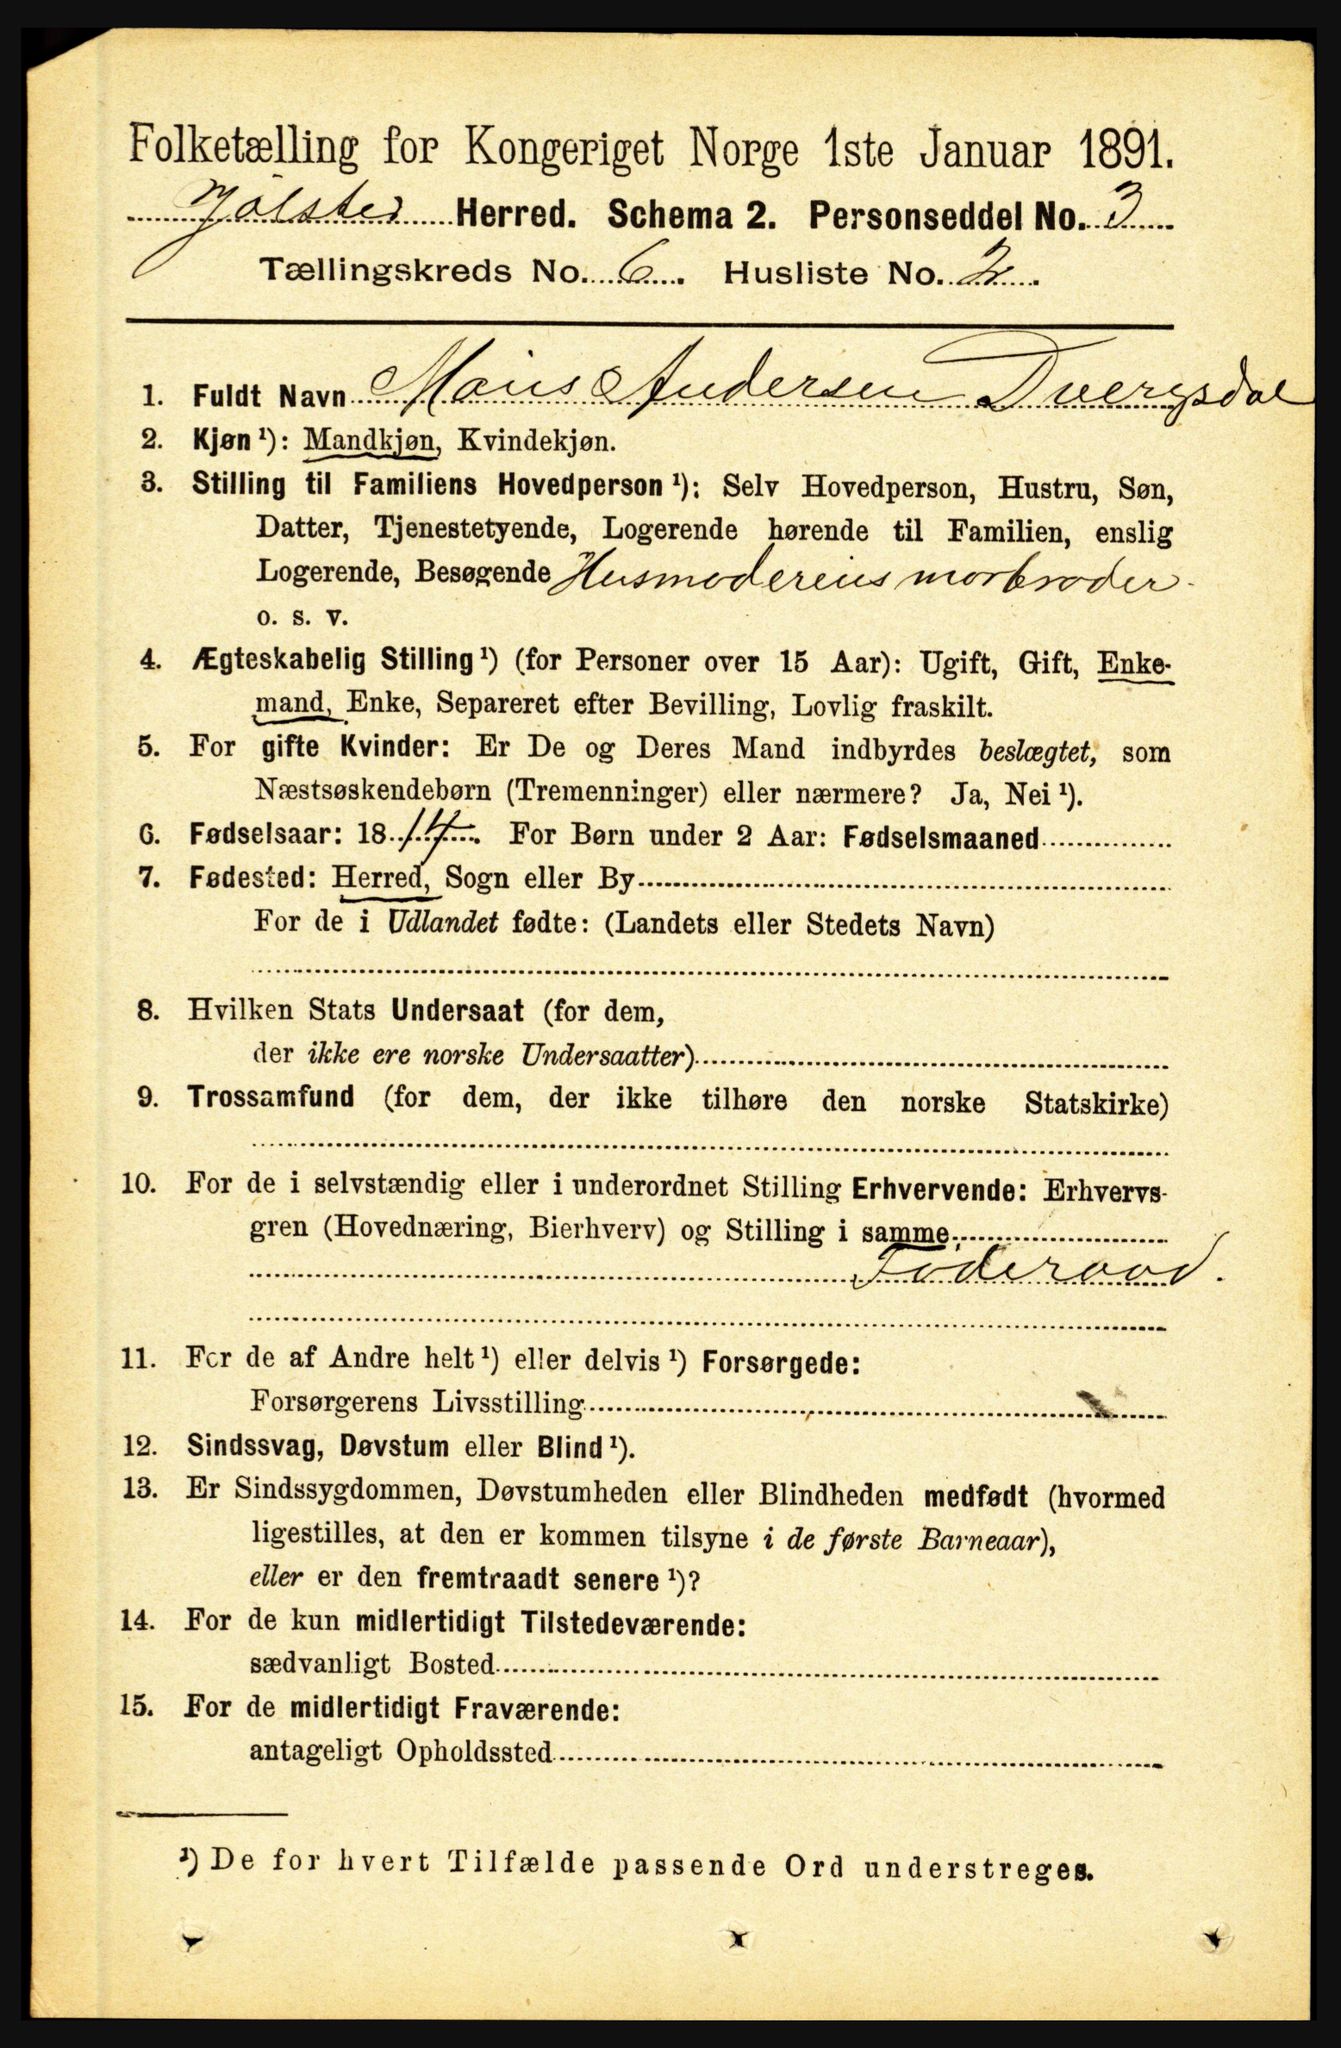 Folketælling for Kongeriget Norge 1ste Januar 1891.
Jølster Herred. Schema 2. Personseddel No. 3
Tællingskreds No. 6. Husliste No. 2.
1. Fuldt Navn Mons Andersen Dvergsdal
2. Kjøn ¹): Mandkjøn, Kvindekjøn.
3. Stilling til Familiens Hovedperson ¹): Selv Hovedperson, Hustru, Søn,
Datter, Tjenestetyende, Logerende hørende til Familien, enslig
Logerende, Besøgende Husmoderens morbroder
o. s. v.
4. Ægteskabelig Stilling ¹) (for Personer over 15 Aar): Ugift, Gift, Enke-
mand, Enke, Separeret efter Bevilling, Lovlig fraskilt.
5. For gifte Kvinder: Er De og Deres Mand indbyrdes beslægtet, som
Næstsøskendebørn (Tremenninger) eller nærmere? Ja, Nei ¹).
6. Fødselsaar: 1814. For Børn under 2 Aar: Fødselsmaaned
7. Fødested: Herred, Sogn eller By
For de i Udlandet fødte: (Landets eller Stedets Navn)
8. Hvilken Stats Undersaat (for dem,
der ikke ere norske Undersaatter)
9. Trossamfund (for dem, der ikke tilhøre den norske Statskirke)
10. For de i selvstændig eller i underordnet Stilling Erhvervende: Erhvervs-
gren (Hovednæring, Bierhverv) og Stilling i samme
Føderaad.
11. For de af Andre helt ¹) eller delvis ¹) Forsørgede:
Forsørgerens Livsstilling
12. Sindssvag, Døvstum eller Blind ¹).
13. Er Sindssygdommen, Døvstumheden eller Blindheden medfødt (hvormed
ligestilles, at den er kommen tilsyne i de første Barneaar),
eller er den fremtraadt senere ¹)?
14. For de kun midlertidigt Tilstedeværende:
sædvanligt Bosted
15. For de midlertidigt Fraværende:
antageligt Opholdssted
¹) De for hvert Tilfælde passende Ord understreges.